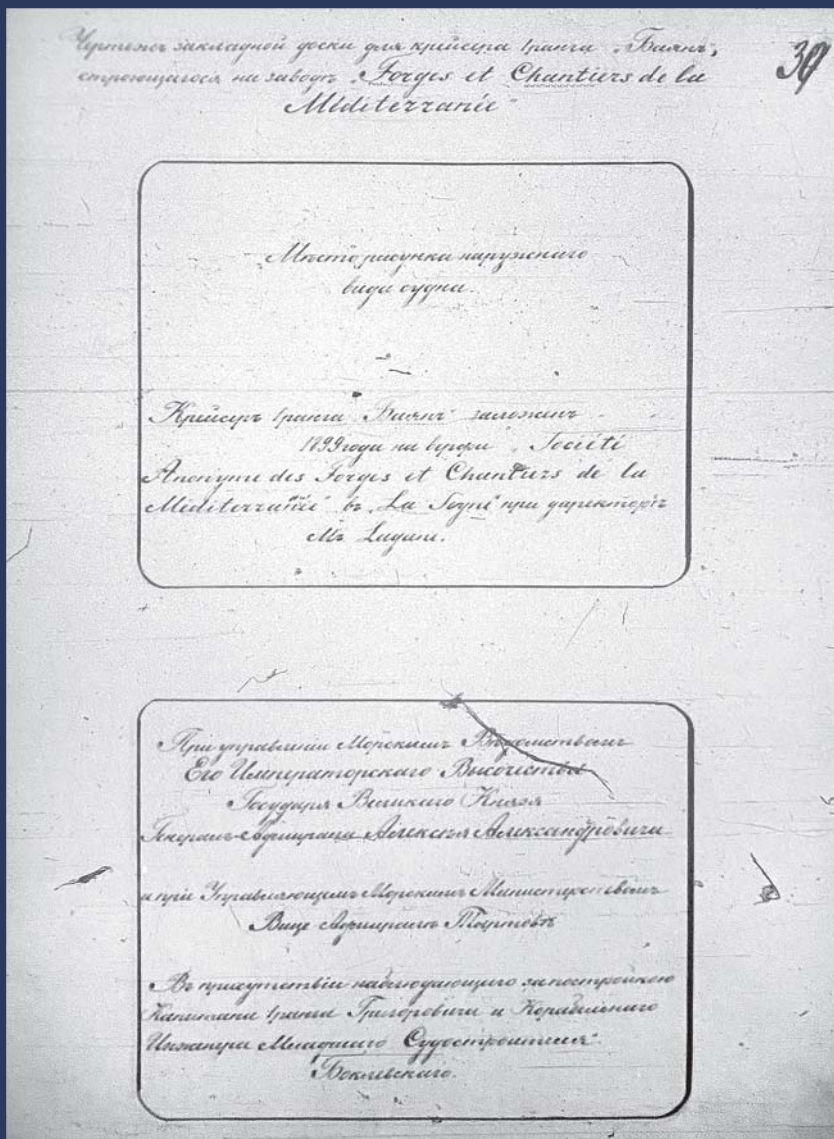 Чертежъ закладной доски для крейсера I ранга „Баянъ",
строющагося на заводѣ „Forges et Chantiers de la
Méditerranée"
39
Мѣсто рисунка наружнаго
вида судна.
Крейсеръ I ранга „Баянъ" заложенъ
1899 года на верфи „Société
Anonyme des Forges et Chantiers de la
Méditerranée" въ „La Seyne" при директорѣ
Mr Lagane.
При управленіи Морскимъ Вѣдомствомъ
Его Императорскаго Высочества
Государя Великаго Князя
Генералъ-Адмирала Алексѣя Александровича
и при Управляющемъ Морскимъ Министерствомъ
Вице-Адмиралѣ Тыртовѣ
Въ присутствіи наблюдающаго за постройкою
Капитана I ранга Григоровича и Корабельнаго
Инженера Младшаго Судостроителя
Боклевскаго.